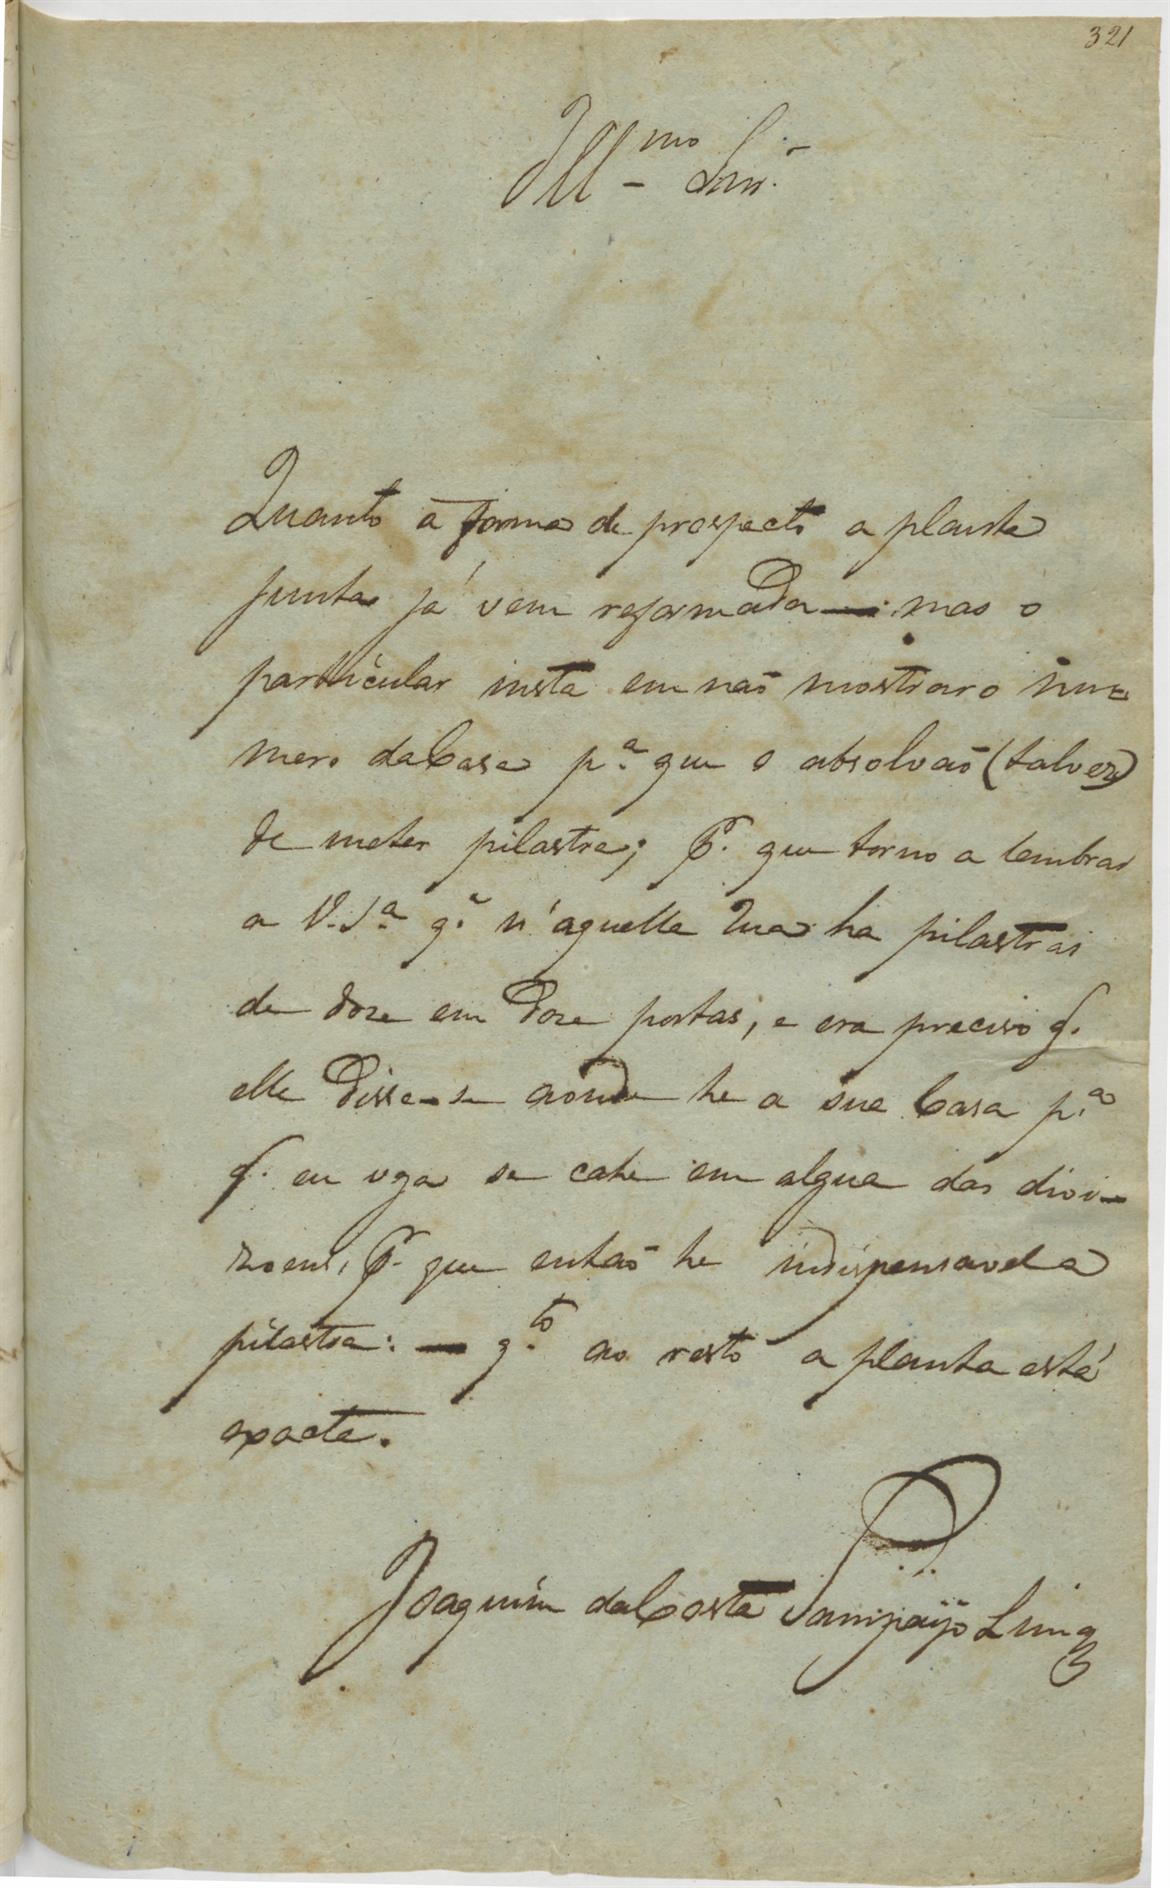 321
Ill.mo Snr.
Quanto a forma de prospecto a planta
junta já vem reformada — mas o
particular insta em naõ mostrar o nu=
mero da Casa p.a que o absolvaõ (talvez)
de meter pilastra; P.r que torno a lembrar
a V.S.a q.e n'aquella Rua ha pilastras
de doze em doze portas, e era preciso q.
elle disse-se aonde he a sua Casa p.a
q. eu veja se cahe em algua das divi-
zoens, P.r que entaõ he indispensavel a
pilastra: — q.to ao resto a planta está
exacta.
Joaquim da Costa Sampaijo Lima